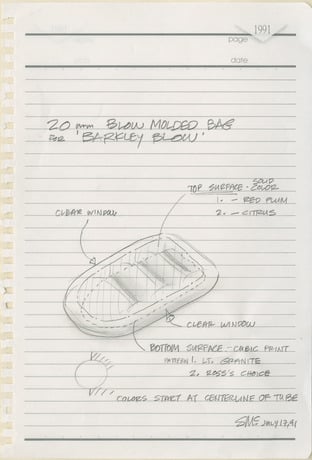 1991
page
date
20 mm BLOW MOLDED BAG
FOR 'BARKLEY BLOW'
TOP SURFACE - SOLID COLOR
1. - RED PLUM
2. - CITRUS
CLEAR WINDOW
CLEAR WINDOW
BOTTOM SURFACE - CUBIC PRINT
PATTERN 1. LT. GRANITE
2. ROSS'S CHOICE
COLORS START AT CENTERLINE OF TUBE
JULY 17, 91